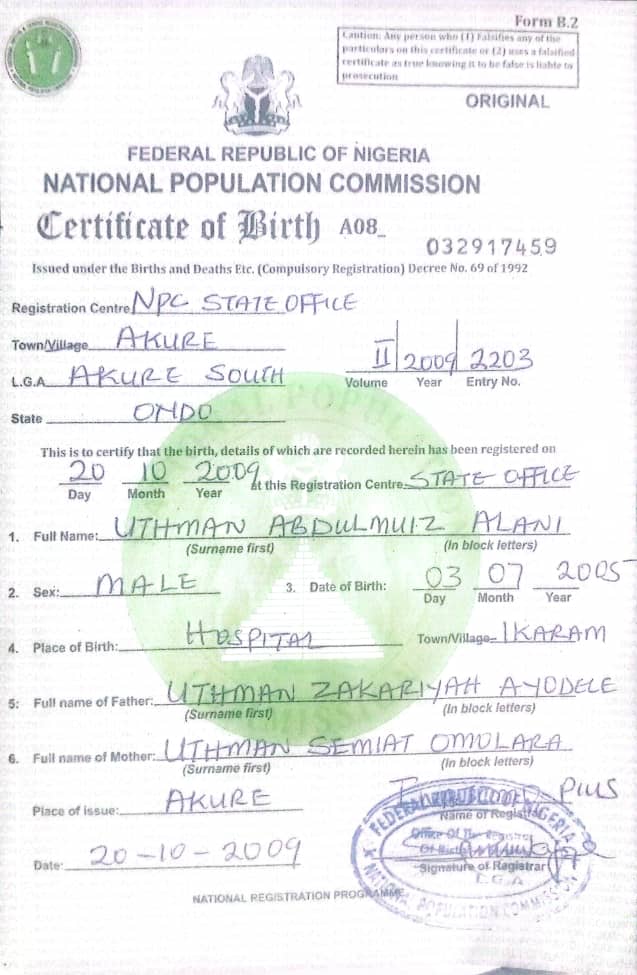 Form B.2
Caution: Any person who (1) Falsifies any of the
particulars on this certificate or (2) uses a falsified
certificate as true knowing it to be false is liable to
prosecution
ORIGINAL
FEDERAL REPUBLIC OF NIGERIA
NATIONAL POPULATION COMMISSION
Certificate of Birth A08_ 032917459
Issued under the Births and Deaths Etc. (Compulsory Registration) Decree No. 69 of 1992
Registration Centre NPC STATE OFFICE
Town/Village AKURE
L.G.A AKURE SOUTH
II 2009 2203
Volume Year Entry No.
State ONDO
This is to certify that the birth, details of which are recorded herein has been registered on
20 10 2009 at this Registration Centre STATE OFFICE
Day Month Year
1. Full Name: UTHMAN ABDULMUIZ ALANI
(Surname first) (In block letters)
2. Sex: MALE 3. Date of Birth: 03 07 2005
Day Month Year
4. Place of Birth: HOSPITAL Town/Village IKARAM
5: Full name of Father: UTHMAN ZAKARIYAH AYODELE
(Surname first) (In block letters)
6. Full name of Mother: UTHMAN SEMIAT OMOLARA
(Surname first) (In block letters)
Place of issue: AKURE
Pius
Name of Registrar
Date: 20-10-2009
Signature of Registrar
FEDERAL REPUBLIC OF NIGERIA
Office Of The Registrar
L.G.A
NATIONAL POPULATION COMMISSION
NATIONAL REGISTRATION PROGRAMME